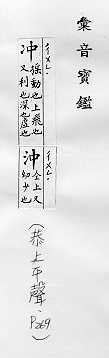 彙音寶鑑
冲
搖動也上飛也
又利也深也虛也
沖
仝上又
幼少也
(恭上平聲,
P269